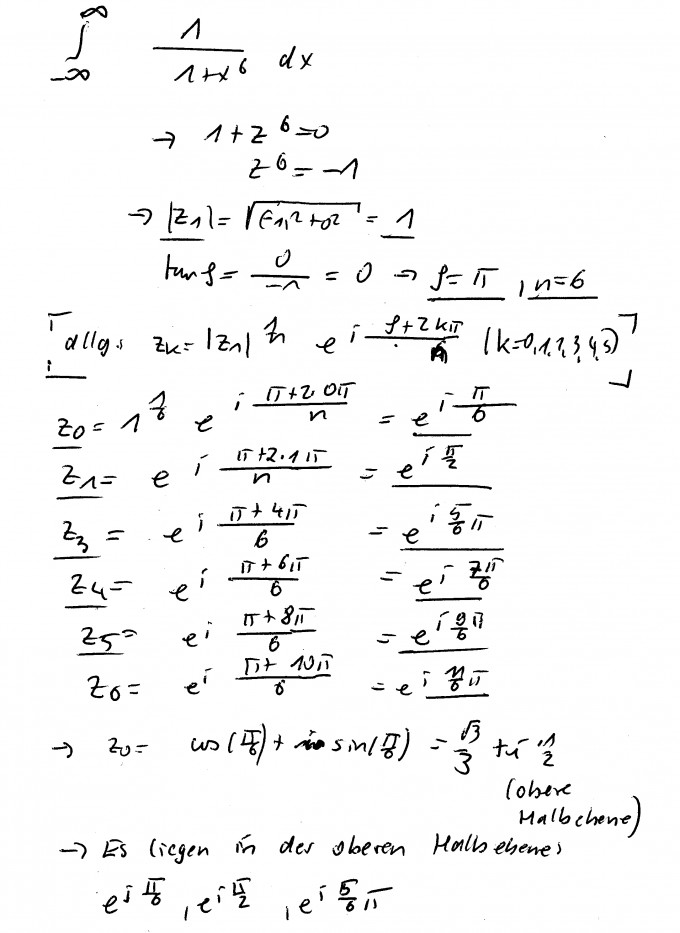 ∫_{-∞}^{∞} 1/(1+x^6) dx
→ 1+z^6=0
z^6=-1
→ |z_1|= √((-1)^2+0^2) = 1
tan φ = 0/-1 = 0 → φ=π , n=6
allg: z_k= |z_1|^{1/n} e^{i (φ+2kπ)/n} (k=0,1,2,3,4,5)
z_0= 1^{1/6} e^{i (π+2·0π)/n} = e^{i π/6}
z_1= e^{i (π+2·1π)/n} = e^{i π/2}
z_3 = e^{i (π+4π)/6} = e^{i 5/6 π}
z_4= e^{i (π+6π)/6} = e^{i 7π/6}
z_5= e^{i (π+8π)/6} = e^{i 9/6 π}
z_6= e^{i (π+10π)/6} = e^{i 11/6 π}
→ z_0= cos(π/6)+ i sin(π/6) = √3/3 + i 1/2
(obere
Halbebene)
→ Es liegen in der oberen Halbebene:
e^{i π/6} , e^{i π/2} , e^{i 5/6 π}